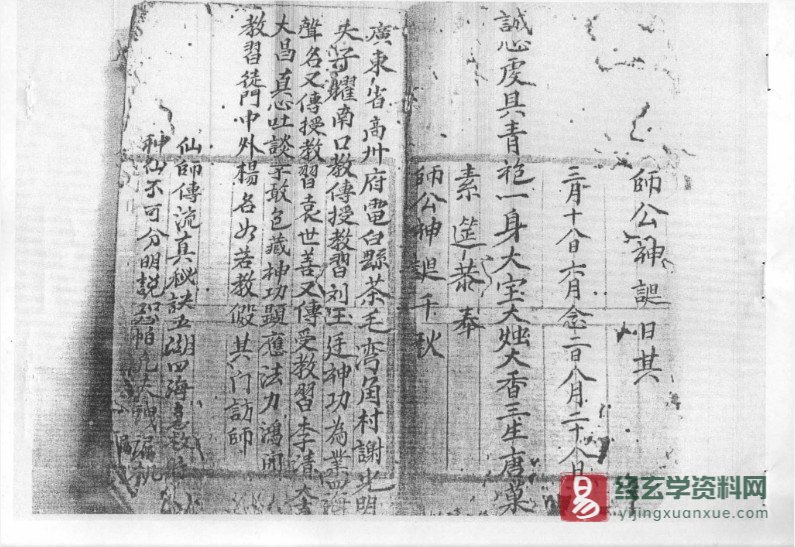 師公神誕日其
三月十八日六月念二日八月二十八日
誠心虔具青袍一身大宝大燭大香三生唐菓
素筵恭奉
師公神誕千秋
廣東省高州府電白縣茶毛湾角村謝光明
夫子耀南口教傳授教習刘玉廷神功為業四海
聲名又傳授教習袁世善又傳受教習李清
大昌真心吐談予敢包藏神功顕應法力鴻
教習徒門中外揚名如若教假其门訪師
仙師傳流真秘訣五湖四海
神仙不可分明説恐怕
易
终玄学资料网
yijingxuanxue.com